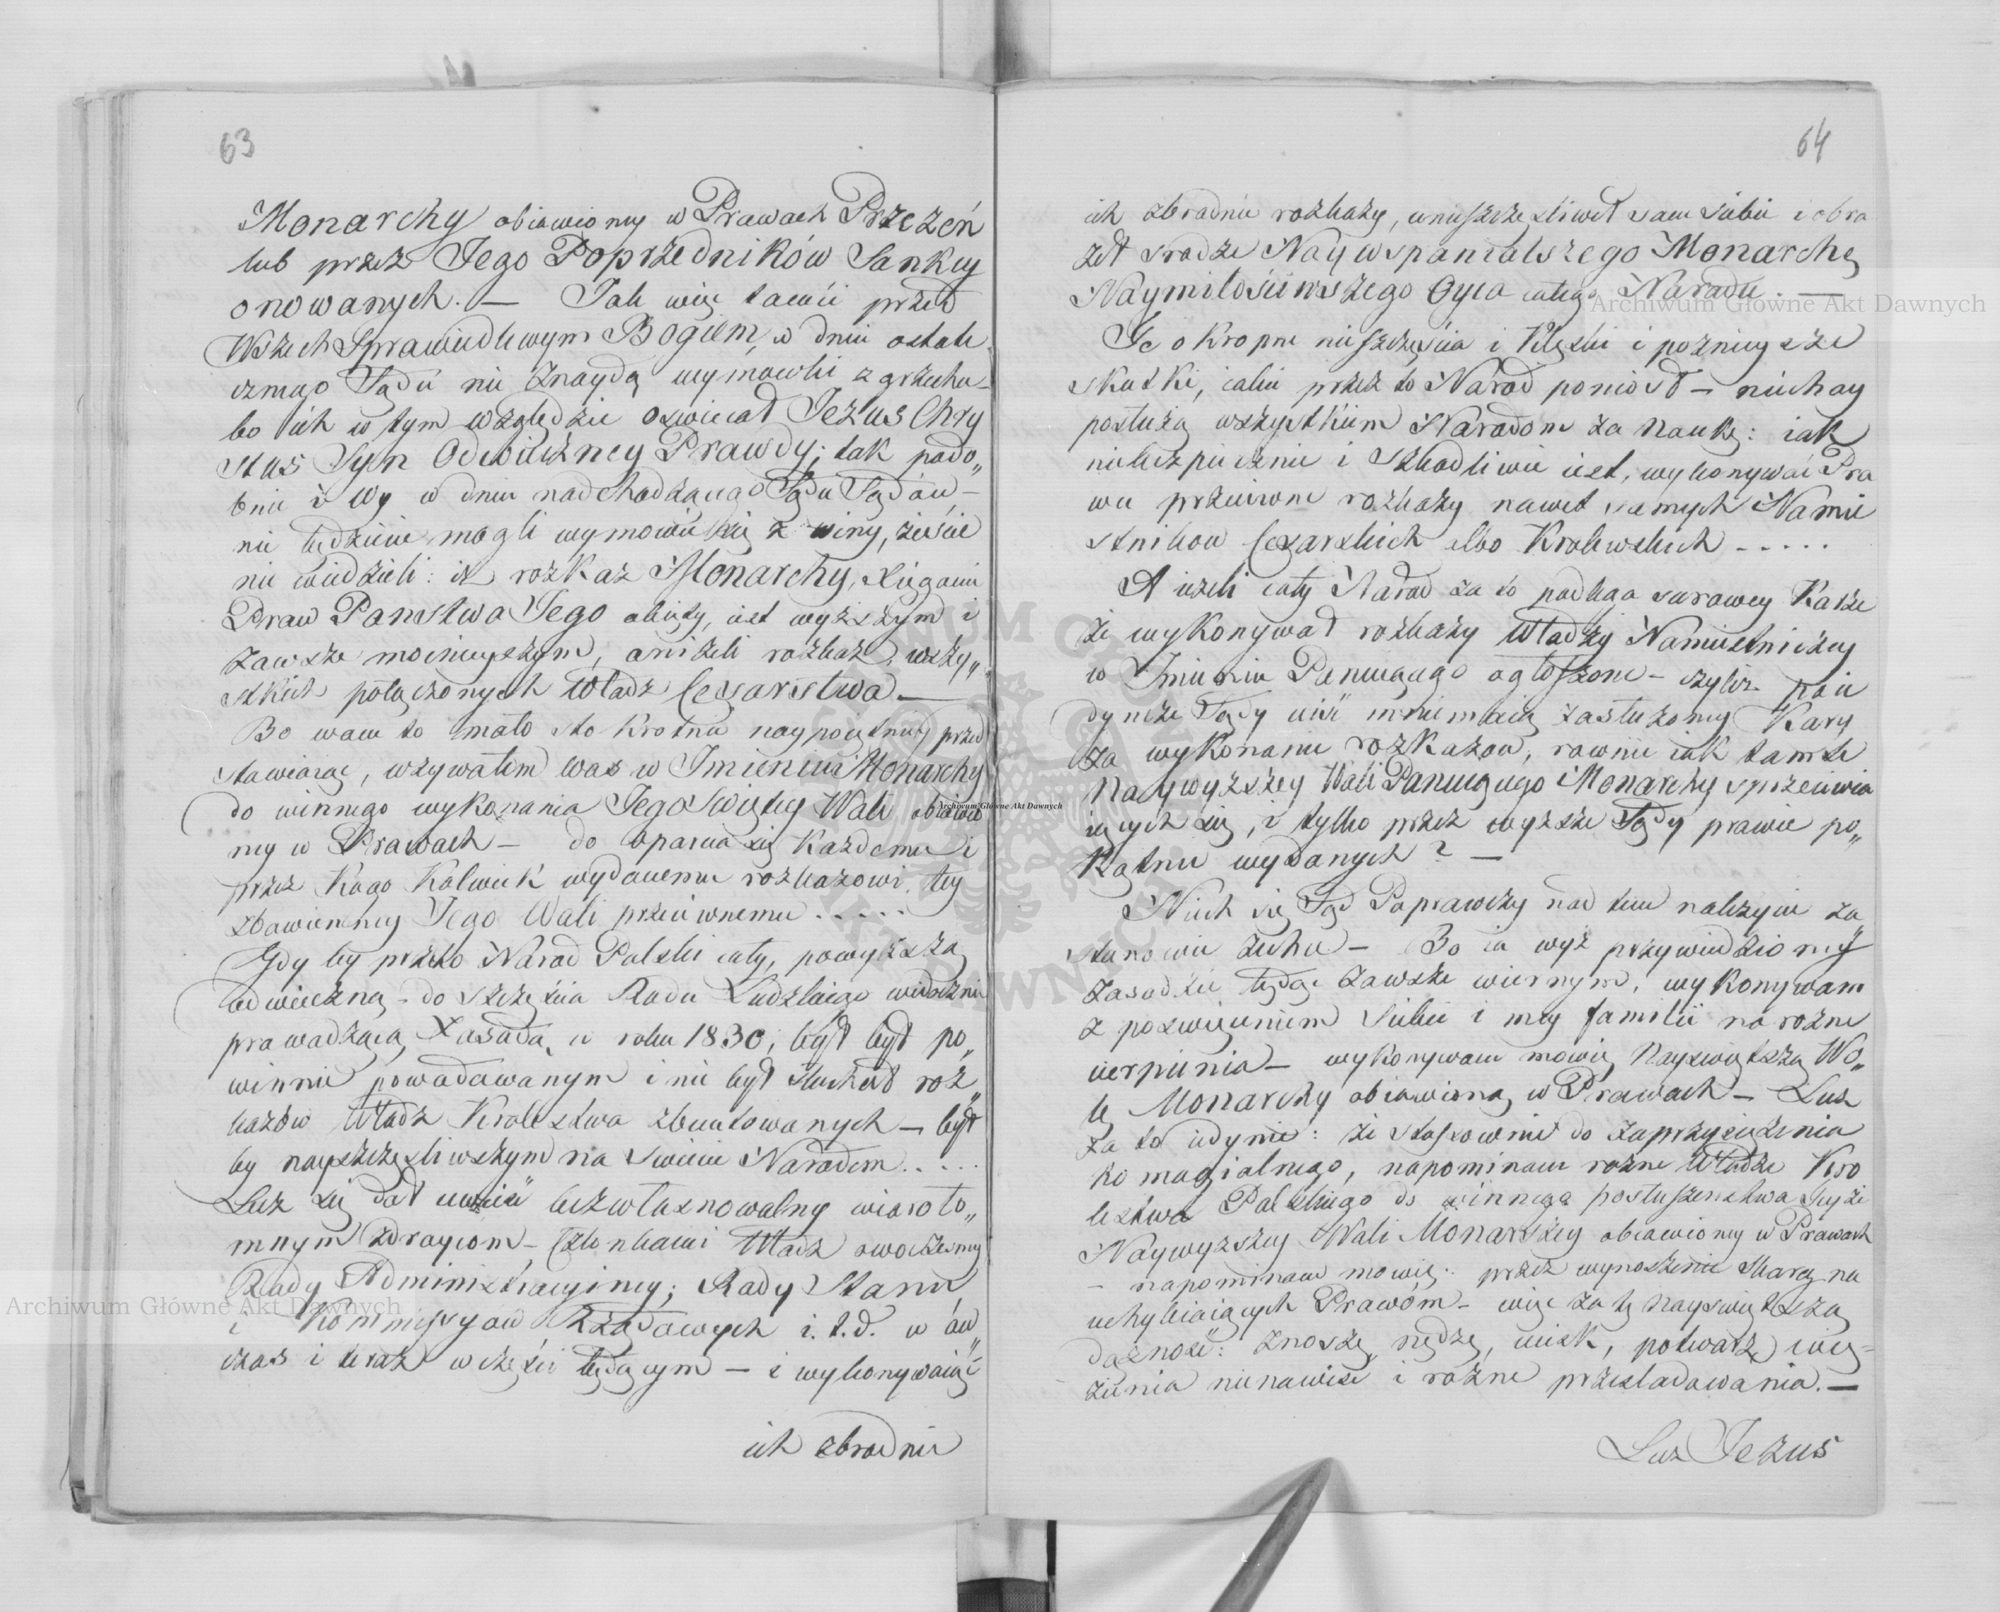 63
Monarchy obiawioney w Prawach Przezeń
lub przez Jego Poprzedników Sankcy
onowanych. — Jak więc tamci przed
Wszech Sprawiedliwym Bogiem, w dniu ostate
cznego Sądu nie znaydą wymowki z grzechu —
bo ich w tym względzie oswiecał Jezus Chry
stus Syn Odwieczney Prawdy; tak podo„
bnie i Wy w dniu nadchodzącego Sądu Sądów —
nie będziecie mogli wymowić się z winy, żeście
nie wiedzieli: iż rozkaz Monarchy, Xięgami
Praw Panstwa Jego obięty, iest wyższym i
zawsze mocnieyszym, aniżeli rozkaz wszy„
stkich połączonych Władz Cesarstwa. —
Bo wam to mało sto krotnie naypoczętniey przed
stawiaiąc, wzywałem was w Imieniu Monarchy
do winnego wykonania Jego Swiętey Woli obiawio
ney w Prawach — do oparcia się Każdemu i
przez Kogo Kolwiek wydanemu rozkazowi, tey
zbawienney Jego Woli przeciwnemu . . . . .
Gdy by przeto Narod Polski cały, powyższą
odwieczną — do szczęścia Rodu Ludzkiego widocznie
prowadzącą Zasadą, w roku 1830, był był po„
winnie powodowanym i nie był słuchał roz„
kazów Władz Krolestwa zbuntowanych — był
by nayszczęsliwszym na swiecie Narodem. . . . .
Lecz się dał uwieść bezwłasnowolny wiaroło„
mnym zdraycom — Członkami Władz owoczesney
Rady Administracyiney; Rady Stanu
i Kommissyow Rządowych i. t. d. w ów„
czas i teraz w części będącym — i wykonywaiąc
ich zbrodnie
64
ich zbrodnie rozkazy, unieszczęsliwił sam siebie i obra
ził srodze Naywspanialszego Monarchę
Naymiłościwszego Oyca całego Narodu. —
Te okropne nieszczęścia i Klęski i poznieysze
skutki, iakie przez to Narod poniosł — niechay
posłużą wszystkim Narodom za naukę: iak
niebezpiecznie i szkodliwie iest, wykonywać Pra
wu przeciwne rozkazy nawet samych Namie
stnikow Cesarskich albo Krolewskich . . . . .
A ieżeli cały Narod za to podlega surowey Karze
że wykonywał rozkazy Władzy Namiestniczey
w Imieniu Panuiącego ogłoszone — czyliż poie
dyncze Sądy uiść mniemaią zasłużoney Kary
za wykonanie rozkazow, rownie iak tamte
Naywyższey Woli Panuiącego Monarchy sprzeciwia
iących się, i tylko przez wyższe Sądy prawie po„
kątnie wydanych? —
Niech się Sąd Poprawczy nad tem należycie za
stanowić zechce — Bo ia wyż przywiedzioney
zasadzie będąc zawsze wiernym, wykonywam
z poswięceniem siebie i mey familii na rożne
cierpienia — wykonywam mowię Nayswiętszą Wo„
lę Monarchy obiawioną w Prawach — Lecz
za to iedynie: że stosownie do zaprzysiężenia
homagialnego, napominam rożne Władze Kro
lestwa Polskiego do winnego posłuszenstwa teyże
Naywyższey Woli Monarszey obiawioney w Prawach
— napominam mowię: przez wynoszenie skarg na
uchybiaiących Prawom — więc za tę nayswiętszą
dążność: znoszę nędzę, ucisk, potwarze, wię=
zienia nienawiść i rożne przesladowania. —
Lecz Jezus
Archiwum Główne Akt Dawnych
Archiwum Główne Akt Dawnych
Archiwum Główne Akt Dawnych